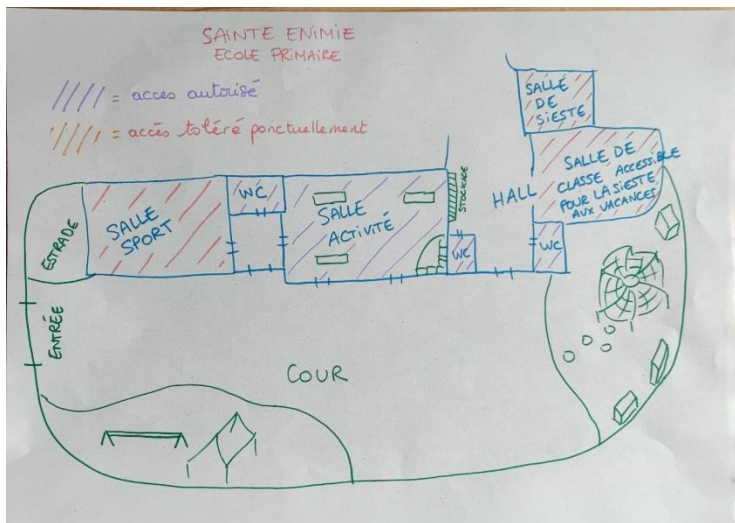 SAINTE ENIMIE
ECOLE PRIMAIRE
= acces autorisé
= accès toléré ponctuellement
SALLE
DE
SIESTE
SALLE DE
CLASSE ACCESSIBLE
POUR LA SIESTE
AUX VACANCES
HALL
WC
STOCKAGE
WC
SALLE
ACTIVITÉ
WC
SALLE
SPORT
ESTRADE
ENTRÉE
COUR